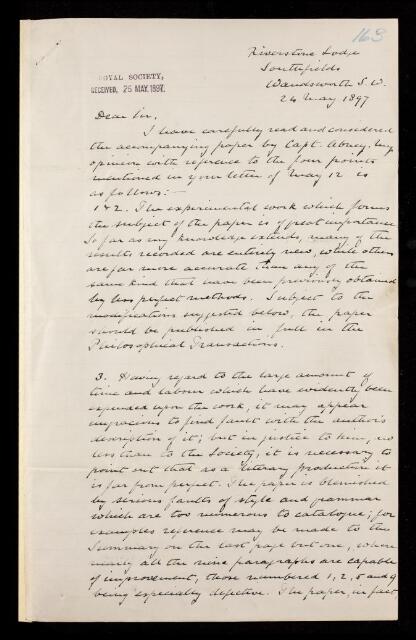 163
Riverstone Lodge
Southfields
Wandsworth S.W.
24 May 1897
ROYAL SOCIETY,
RECEIVED, 25 MAY.1897.
Dear Sir,
I have carefully read and considered
the accompanying paper by Capt. Abney. My
opinion with reference to the four points
mentioned in your letter of May 12 is
as follows:—
1 & 2. The experimental work which forms
the subject of the paper is of great importance.
So far as my knowledge extends, many of the
results recorded are entirely new, while others
are far more accurate than any of the
same kind that have been previously obtained
by less perfect methods. Subject to the
modifications suggested below, the paper
should be published in full in the
Philosophical Transactions.
3. Having regard to the large amount of
time and labour which have evidently been
expended upon the work, it may appear
ungracious to find fault with the author's
description of it; but in justice to him, no
less than to the Society, it is necessary to
point out that as a literary production it
is far from perfect. The paper is blemished
by serious faults of style and grammar
which are too numerous to catalogue; for
examples reference may be made to the
Summary on the last page but one, where
nearly all the nine paragraphs are capable
of improvement, those numbered 1, 2, 5 and 9
being especially defective. The paper, in fact